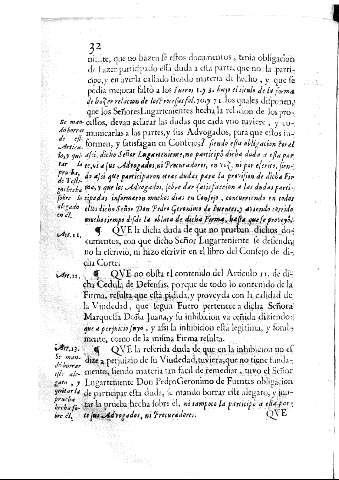 32
niente, que no hazen se estos documentos, tenia obligacion
de hazer participado esta duda a esta parte, que no la parti-
cipó, y en averla callado siendo materia de hecho, y que se
pedia mejorar faltó a los fueros 1. y 3. baxo el titulo de la forma
de hazer relacion de los Procesos fol. 70. y 71. los quales disponen,
que los Señores Lugartenientes hecha la relacion de los pro-
cessos, devan aclarar las dudas que cada uno tuviere, y co-
municarlas a las partes, y sus Advogados, para que estos in-
formen, y satisfagan en Consejo; siendo esta obligacion
asi, dicho Señor Lugarteniente, no participó dicha duda a esta par
te, ni a sus Advogados, ni Procuradores, en voz, ni por escrito, sien-
do assi que participaron otras dudas para la provision de dicha Fir
ma, y que los Advogados, sobre dar satisfaccion a las dudas parti-
cipadas informaron muchos dias en Consejo, concurriendo en todos
ellos dicho Señor Don Pedro Geronimo de Fuentes, y aviendo corrido
mucho tiempo desde la oblata de dicha Firma, hasta que se proveyó.
Se man-
dó borrar
este
Articu-
lo, y qui-
tar la
proba,
de Testi-
gos hecha
sobre lo
alegado
en él.
Art. 11.
¶ QVE la dicha duda de que no prueban dichos do-
cumentos, con que dicho Señor Lugarteniente se defiende,
no la escrivió, ni hizo escrivir en el libro del Consejo de di-
cha Corte.
Art. 12.
¶ QVE no obsta el contenido del Articulo 11. de di-
cha Cedula de Defensas, porque de todo lo contenido de la
Firma, resulta que está pidida, y proveyda con la calidad de
la Viudedad, que segun Fuero pertenece a dicha Señora
Marquessa Doña Juana, y su inhibicion va ceñida diziendo:
que a perjuicio suyo, y assi la inhibicion está legitima, y fonal-
mente, como de la misma Firma resulta.
Art. 13.
Se man-
dó borrar
este ale-
gato, y
quitar la
prueba
hecha so-
bre él.
¶ QVE la referida duda de que en la inhibicion no se
dize a perjuizio de su Viudedad, tuviera, que no tiene funda-
mento, siendo materia tan facil de remediar, tuvo el Señor
Lugarteniente Don Pedro Geronimo de Fuentes obligacion
de participar esta duda, se mandó borrar este alegato, y qui-
tar la prueba hecha sobre él, ni tampoco la participó a esta par-
te sus Advogados, ni Procuradores.
QVE